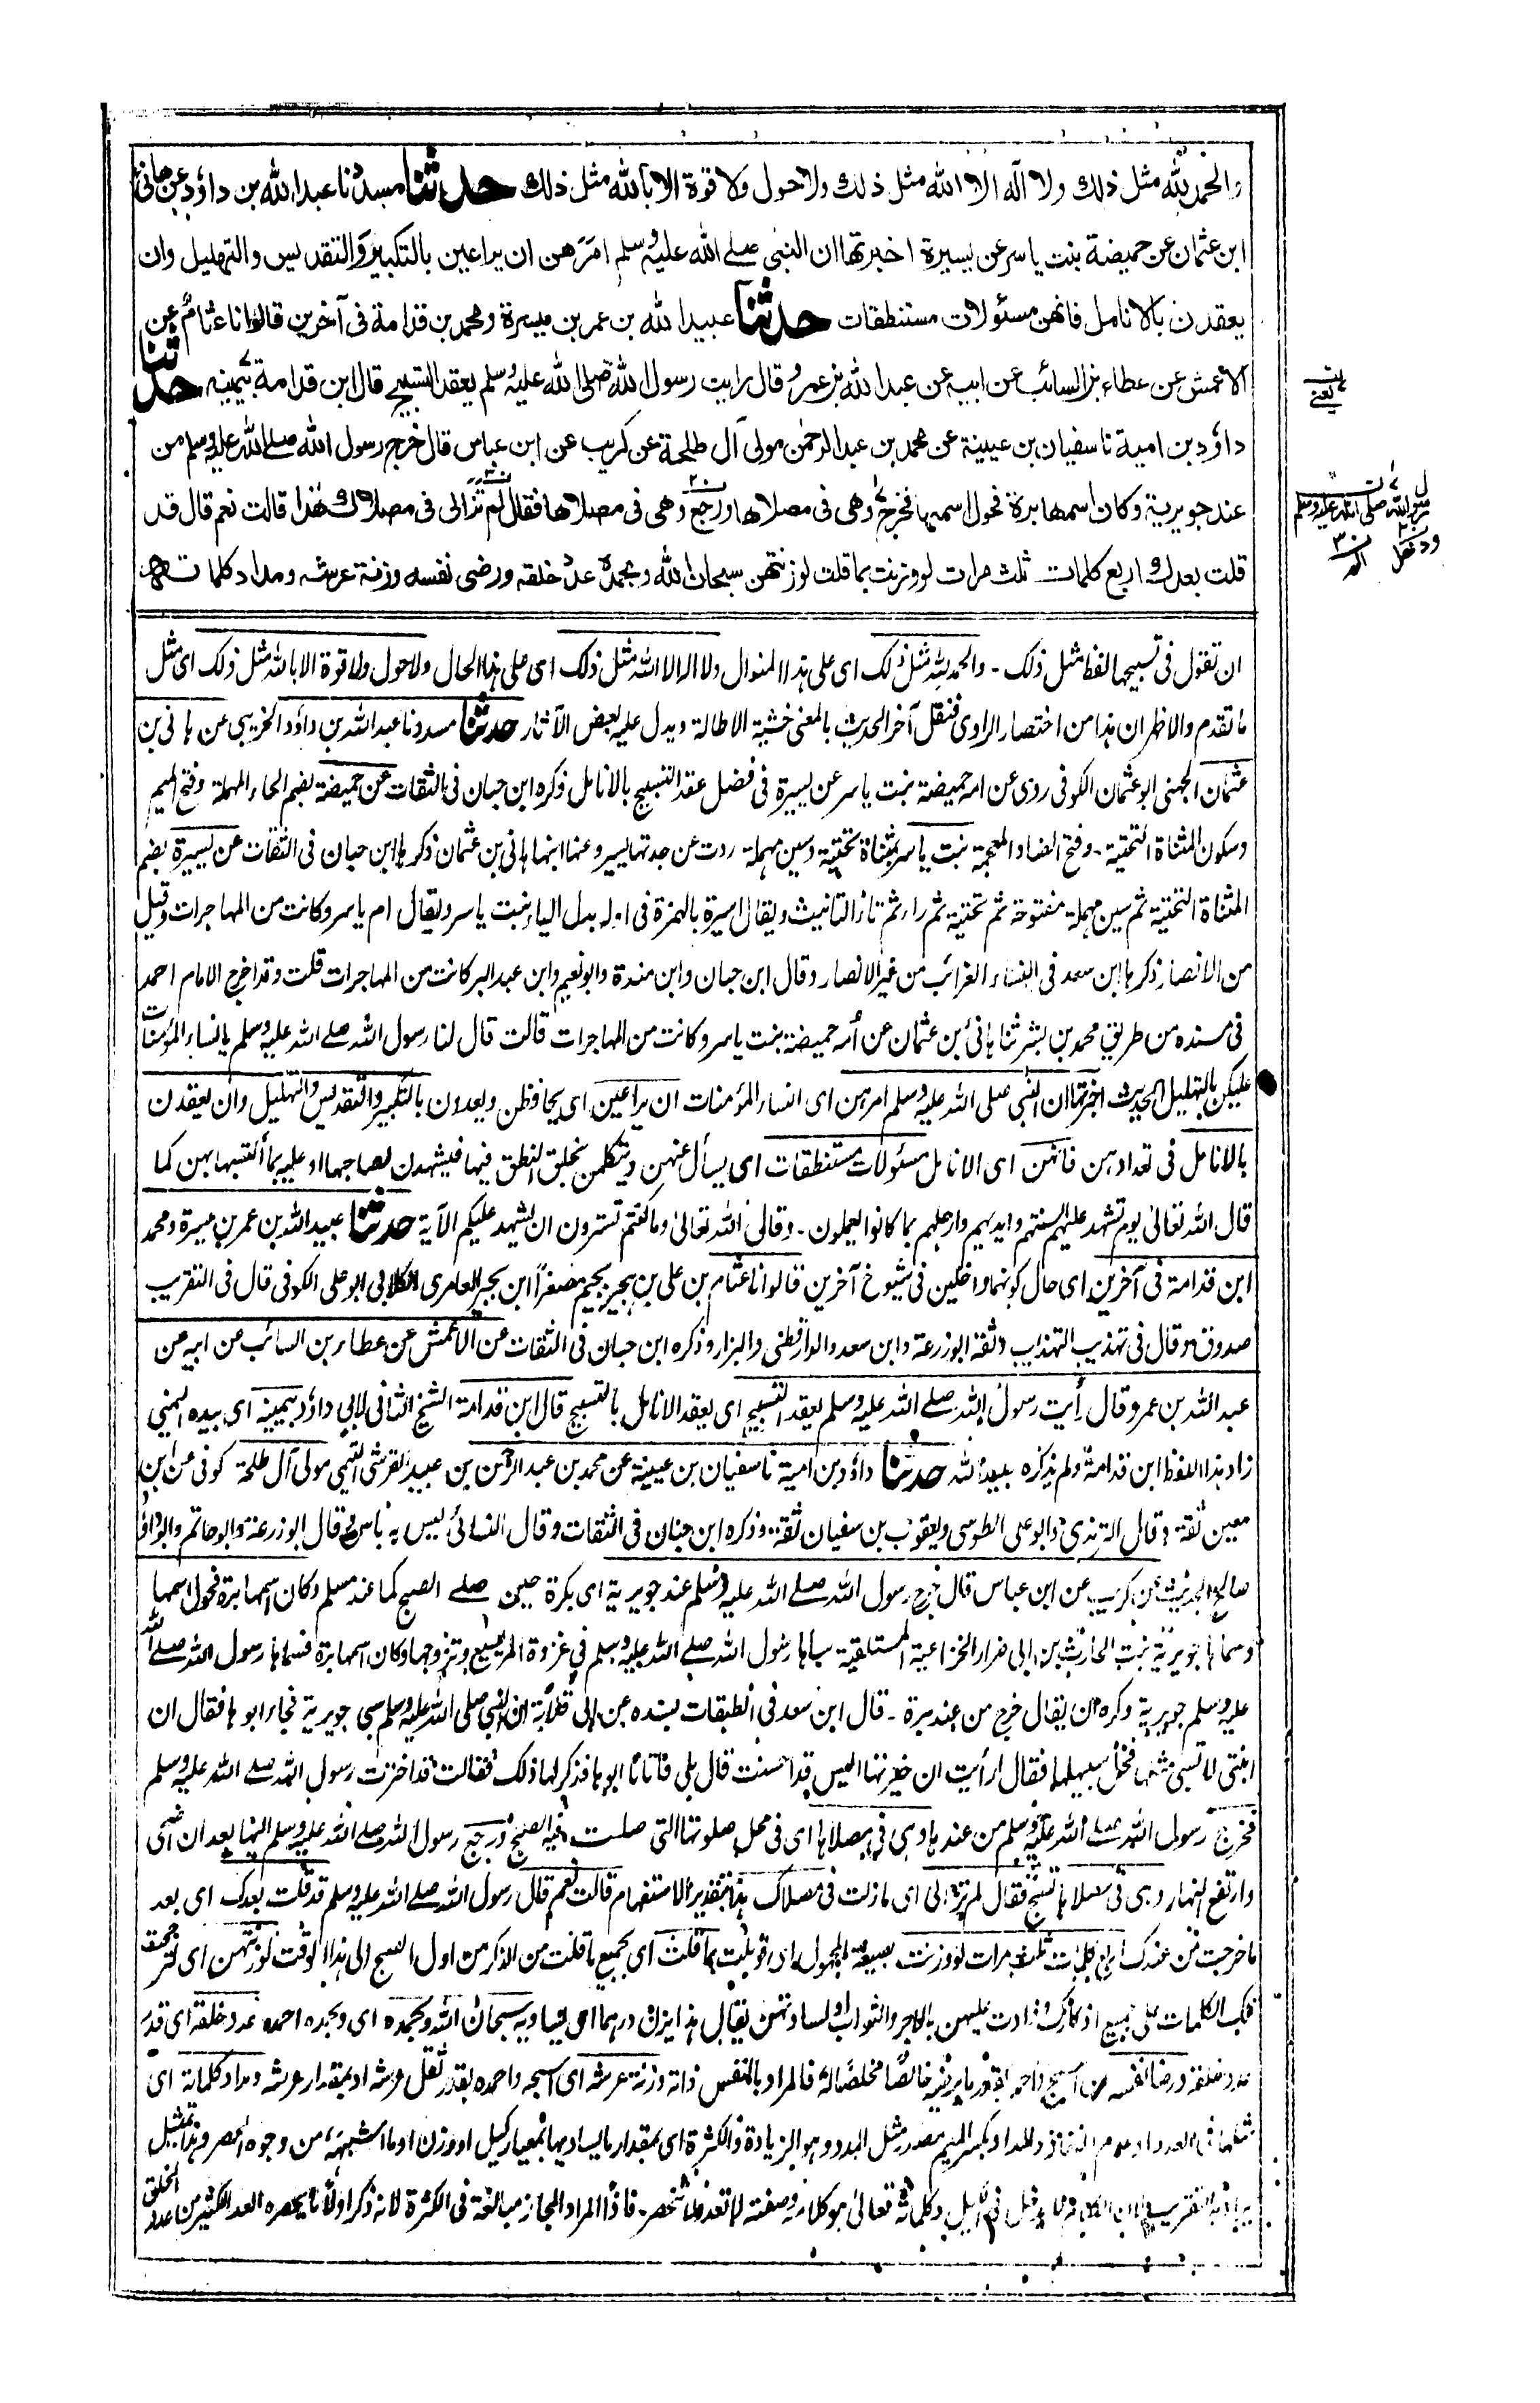 والحمد لله مثل ذلك ولا اله الا الله مثل ذلك ولا حول ولا قوة الا بالله مثل ذلك حدثنا مسدد نا عبدالله بن داؤد عن هانئ
ابن عثمان عن حميضة بنت ياسر عن يسيرة اخبرتها ان النبي صلے الله عليه وسلم امرهن ان يراعين بالتكبير والتقديس والتهليل وان
يعقدن بالانامل فانهن مسئولات مستنطقات حدثنا عبيد الله بن عمر بن ميسرة ومحمد بن قدامة فى آخرين قالوا نا عثام عن
الاعمش عن عطاء بن السائب عن ابيه عن عبد الله بن عمرو قال رايت رسول الله صلى الله عليه وسلم يعقد التسبيح قال ابن قدامة بيمينه حدثنا
داؤد بن امية نا سفيان بن عيينة عن محمد بن عبد الرحمن مولى آل طلحة عن كريب عن ابن عباس قال خرج رسول الله صلے الله عليه وسلم من
عند جويرية وكان اسمها برة فحول اسمها فخرج وهى فى مصلاها ورجع وهى فى مصلاها فقال لم تزالى فى مصلاك هذا قالت نعم قال قد
قلت بعدك اربع كلمات ثلث مرات لو وزنت بما قلت لوزنتهن سبحان الله وبحمده عدد خلقه ورضى نفسه وزنة عرشه ومداد كلماته
ان تقول فى تسبيحها لفظ مثل ذلك - والحمد لله مثل ذلك اى على هذا المنوال ولا اله الا الله مثل ذلك اى على هذا الحال ولا حول ولا قوة الا بالله مثل ذلك اى مثل
ما تقدم والاظهر ان هذا من اختصار الراوى فنقل آخر الحديث بالمعنى خشية الاطالة ويدل عليه بعض الآثار حدثنا مسدد نا عبد الله بن داؤد الخريبى عن هانى بن
عثمان الجهنى ابو عثمان الكوفى روى عن امه حميضة بنت ياسر عن يسيرة فى فضل عقد التسبيح بالانامل ذكره ابن حبان فى الثقات عن حميضة بضم الحاء المهملة وفتح الميم
وسكون المثناة التحتية - وفتح الضاد المعجمة بنت ياسر بمثناة تحتية وسين مهملة روت عن جدتها يسيرة وعنها ابنها هانى بن عثمان ذكرها ابن حبان فى الثقات عن يسيرة بضم
المثناة التحتية ثم سين مهملة مفتوحة ثم تحتية ثم راء ثم تاء التانيث ويقال اسيرة بالهمزة فى اوله بدل الياء بنت ياسر ويقال ام ياسر وكانت من المهاجرات وقيل
من الانصار ذكرها ابن سعد فى النساء الغرائب من غير الانصار وقال ابن حبان وابن مندة وابو نعيم وابن عبد البر كانت من المهاجرات قلت وقد اخرج الامام احمد
فى مسنده من طريق محمد بن بشر ثنا هانئ بن عثمان عن أمه حميضة بنت ياسر وكانت من المهاجرات قالت قال لنا رسول الله صلے الله عليه وسلم يا نساء المؤمنات
عليكن بالتهليل الحديث اخبرتها ان النبى صلى الله عليه وسلم امرهن اى النساء المؤمنات ان يراعين اى يحافظن ويعددن بالتكبير والتقديس والتهليل وان يعقدن
بالانامل فى تعدادهن فانهن اى الانامل مسئولات مستنطقات اى يسأل عنهن ويتكلمن بخلق النطق فيها فيشهدن لصاحبها او عليه بما اكتسبها بهن كما
قال الله تعالى يوم تشهد عليهم السنتهم وايديهم وارجلهم بما كانوا يعملون - وقال الله تعالى وما كنتم تسترون ان يشهد عليكم الآية حدثنا عبيد الله بن عمر بن ميسرة ومحمد
ابن قدامة فى آخرين اى حال كونهما داخلين فى شيوخ آخرين قالوا نا عثام بن على بن هجير بجيم مصغرا ابن بجير العامرى الكلابى ابو على الكوفى قال فى التقريب
صدوق وقال فى تهذيب التهذيب وثقه ابو زرعة وابن سعد والدارقطنى والبزار وذكره ابن حبان فى الثقات عن الاعمش عن عطاء بن السائب عن ابيه عن
عبد الله بن عمرو قال رأيت رسول الله صلے الله عليه وسلم يعقد التسبيح اى يعقد الانامل بالتسبيح قال ابن قدامة الشيخ الثانى لابى داؤد بيمينه اى بيده اليمنى
زاد هذا اللفظ ابن قدامة ولم يذكره عبيد الله حدثنا داؤد بن امية نا سفيان بن عيينة عن محمد بن عبد الرحمن بن عبيد القرشى التيمى مولى آل طلحة كوفى عن ابن
معين ثقة وقال الترمذى وابو على الطوسى ويعقوب بن سفيان ثقة وذكره ابن حبان فى الثقات وقال النسائى ليس به باس وقال ابو زرعة وابو حاتم وابو داؤد
صالح الحديث عن كريب عن ابن عباس قال خرج رسول الله صلے الله عليه وسلم عند جويرية اى بكرة حين صلے الصبح كما عند مسلم وكان اسمها برة فحول اسمها
وسماها جويرية بنت الحارث بن ابى ضرار الخزاعية المصطلقية سباها رسول الله صلے الله عليه وسلم فى غزوة المريسيع وتزوجها وكان اسمها برة فسماها رسول الله صلے الله
عليه وسلم جويرية وكره ان يقال خرج من عند برة - قال ابن سعد فى الطبقات بسنده عن ابى قلابة ان النبى صلى الله عليه وسلم سبى جويرية فجاء ابوها فقال ان
ابنتى لا تسبى مثلها فخل سبيلها فقال ارأيت ان خيرتها اليس قد احسنت قال بلى فاتاها ابوها فذكر لها ذلك فقالت قد اخترت رسول الله صلے الله عليه وسلم
فخرج رسول الله صلے الله عليه وسلم من عندها وهى فى مصلاها اى فى محل صلوتها التى صلت فيه الصبح ورجع رسول الله صلے الله عليه وسلم اليها بعد ان اضحى
وارتفع النهار وهى فى مصلاها تسبح فقال لم تزالى اى ما زلت فى مصلاك هذا بتقدير الاستفهام قالت نعم قال رسول الله صلے الله عليه وسلم قد قلت بعدك اى بعد
ما خرجت من عندك اربع كلمات ثلث مرات لو وزنت بصيغة المجهول اى قوبلت بما قلت اى بجميع ما قلت من الذكر من اول الصبح الى هذا الوقت لوزنتهن اى
تلك الكلمات على جميع اذكارك وزادت عليهن بالاجر والثواب او لساوتهن يقال هذا يزن درهما اى يساويه سبحان الله وبحمده اى وبحمده احمده عدد خلقه اى قدر
عدد خلقه ورضا نفسه اى اسبح واحمد بقدر ما يرضيه خالصًا مخلصًا له فالمراد بالنفس ذاته وزنة عرشه اى اسبحه واحمده بقدر ثقل عرشه او بمقدار عرشه ومداد كلماته اى
مثلها فى العدد او عدم النفاذ والمداد بكسر الميم مصدر مثل المدد وهو الزيادة والكثرة اى بمقدار ما يساويها بمعيار كيل او وزن او ما اشبهه من وجوه الحصر وهذا تمثيل
يراد به التقريب لان الكلام لا يدخل فى الكيل وكلماته تعالى هو كلامه وصفته لا تعد ولا تنحصر - فاذا المراد المجاز مبالغة فى الكثرة لانه ذكر اولًا ما يحصره العد الكثير من عدد الخلق
يعنى
رسول الله صلى الله عليه وسلم